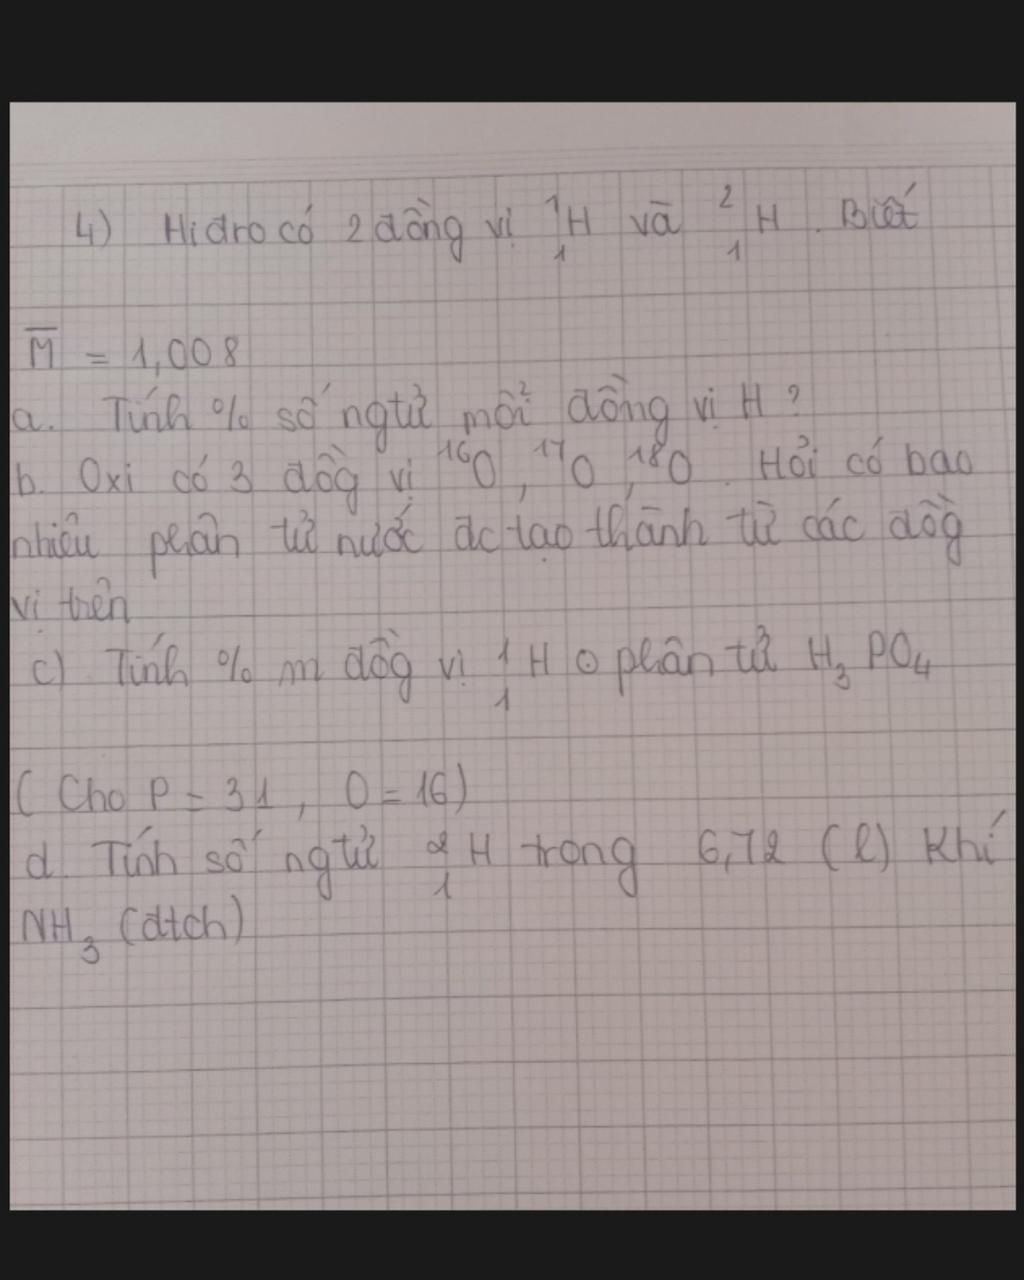 4) Hiđro có 2 đồng vị ¹₁H và ²₁H. Biết
M̅ = 1,008
a. Tính % số ngtử mỗi đồng vị H?
b. Oxi có 3 đồg vị ¹⁶O, ¹⁷O, ¹⁸O. Hỏi có bao
nhiêu phân tử nước đc tạo thành từ các đồg
vị trên
c) Tính % m đồg vị ¹₁H o phân tử H₃PO₄
(Cho P = 31, O = 16)
d. Tính số ngtử ²₁H trong 6,72 (l) khí
NH₃ (đtch)